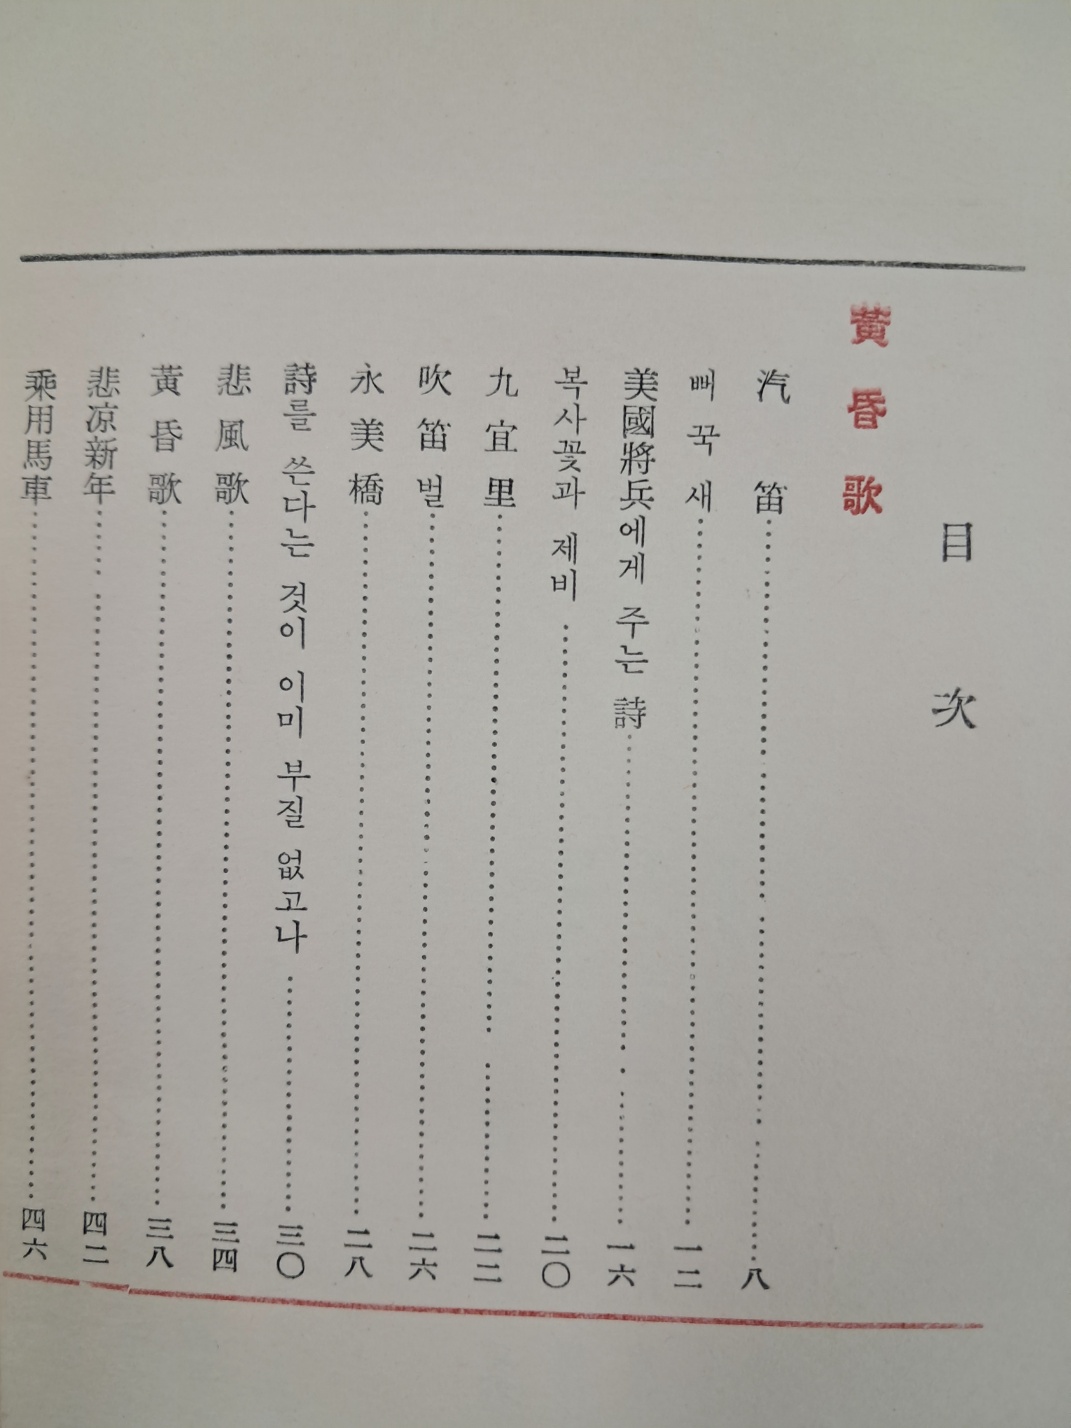 目次
黃昏歌
汽笛 八
뻐꾹새 一二
美國將兵에게 주는 詩 一六
복사꽃과 제비 二〇
九宜里 二二
吹笛벌 二六
永美橋 二八
詩를 쓴다는 것이 이미 부질 없고나 三〇
悲風歌 三四
黃昏歌 三八
悲凉新年 四二
乘用馬車 四六